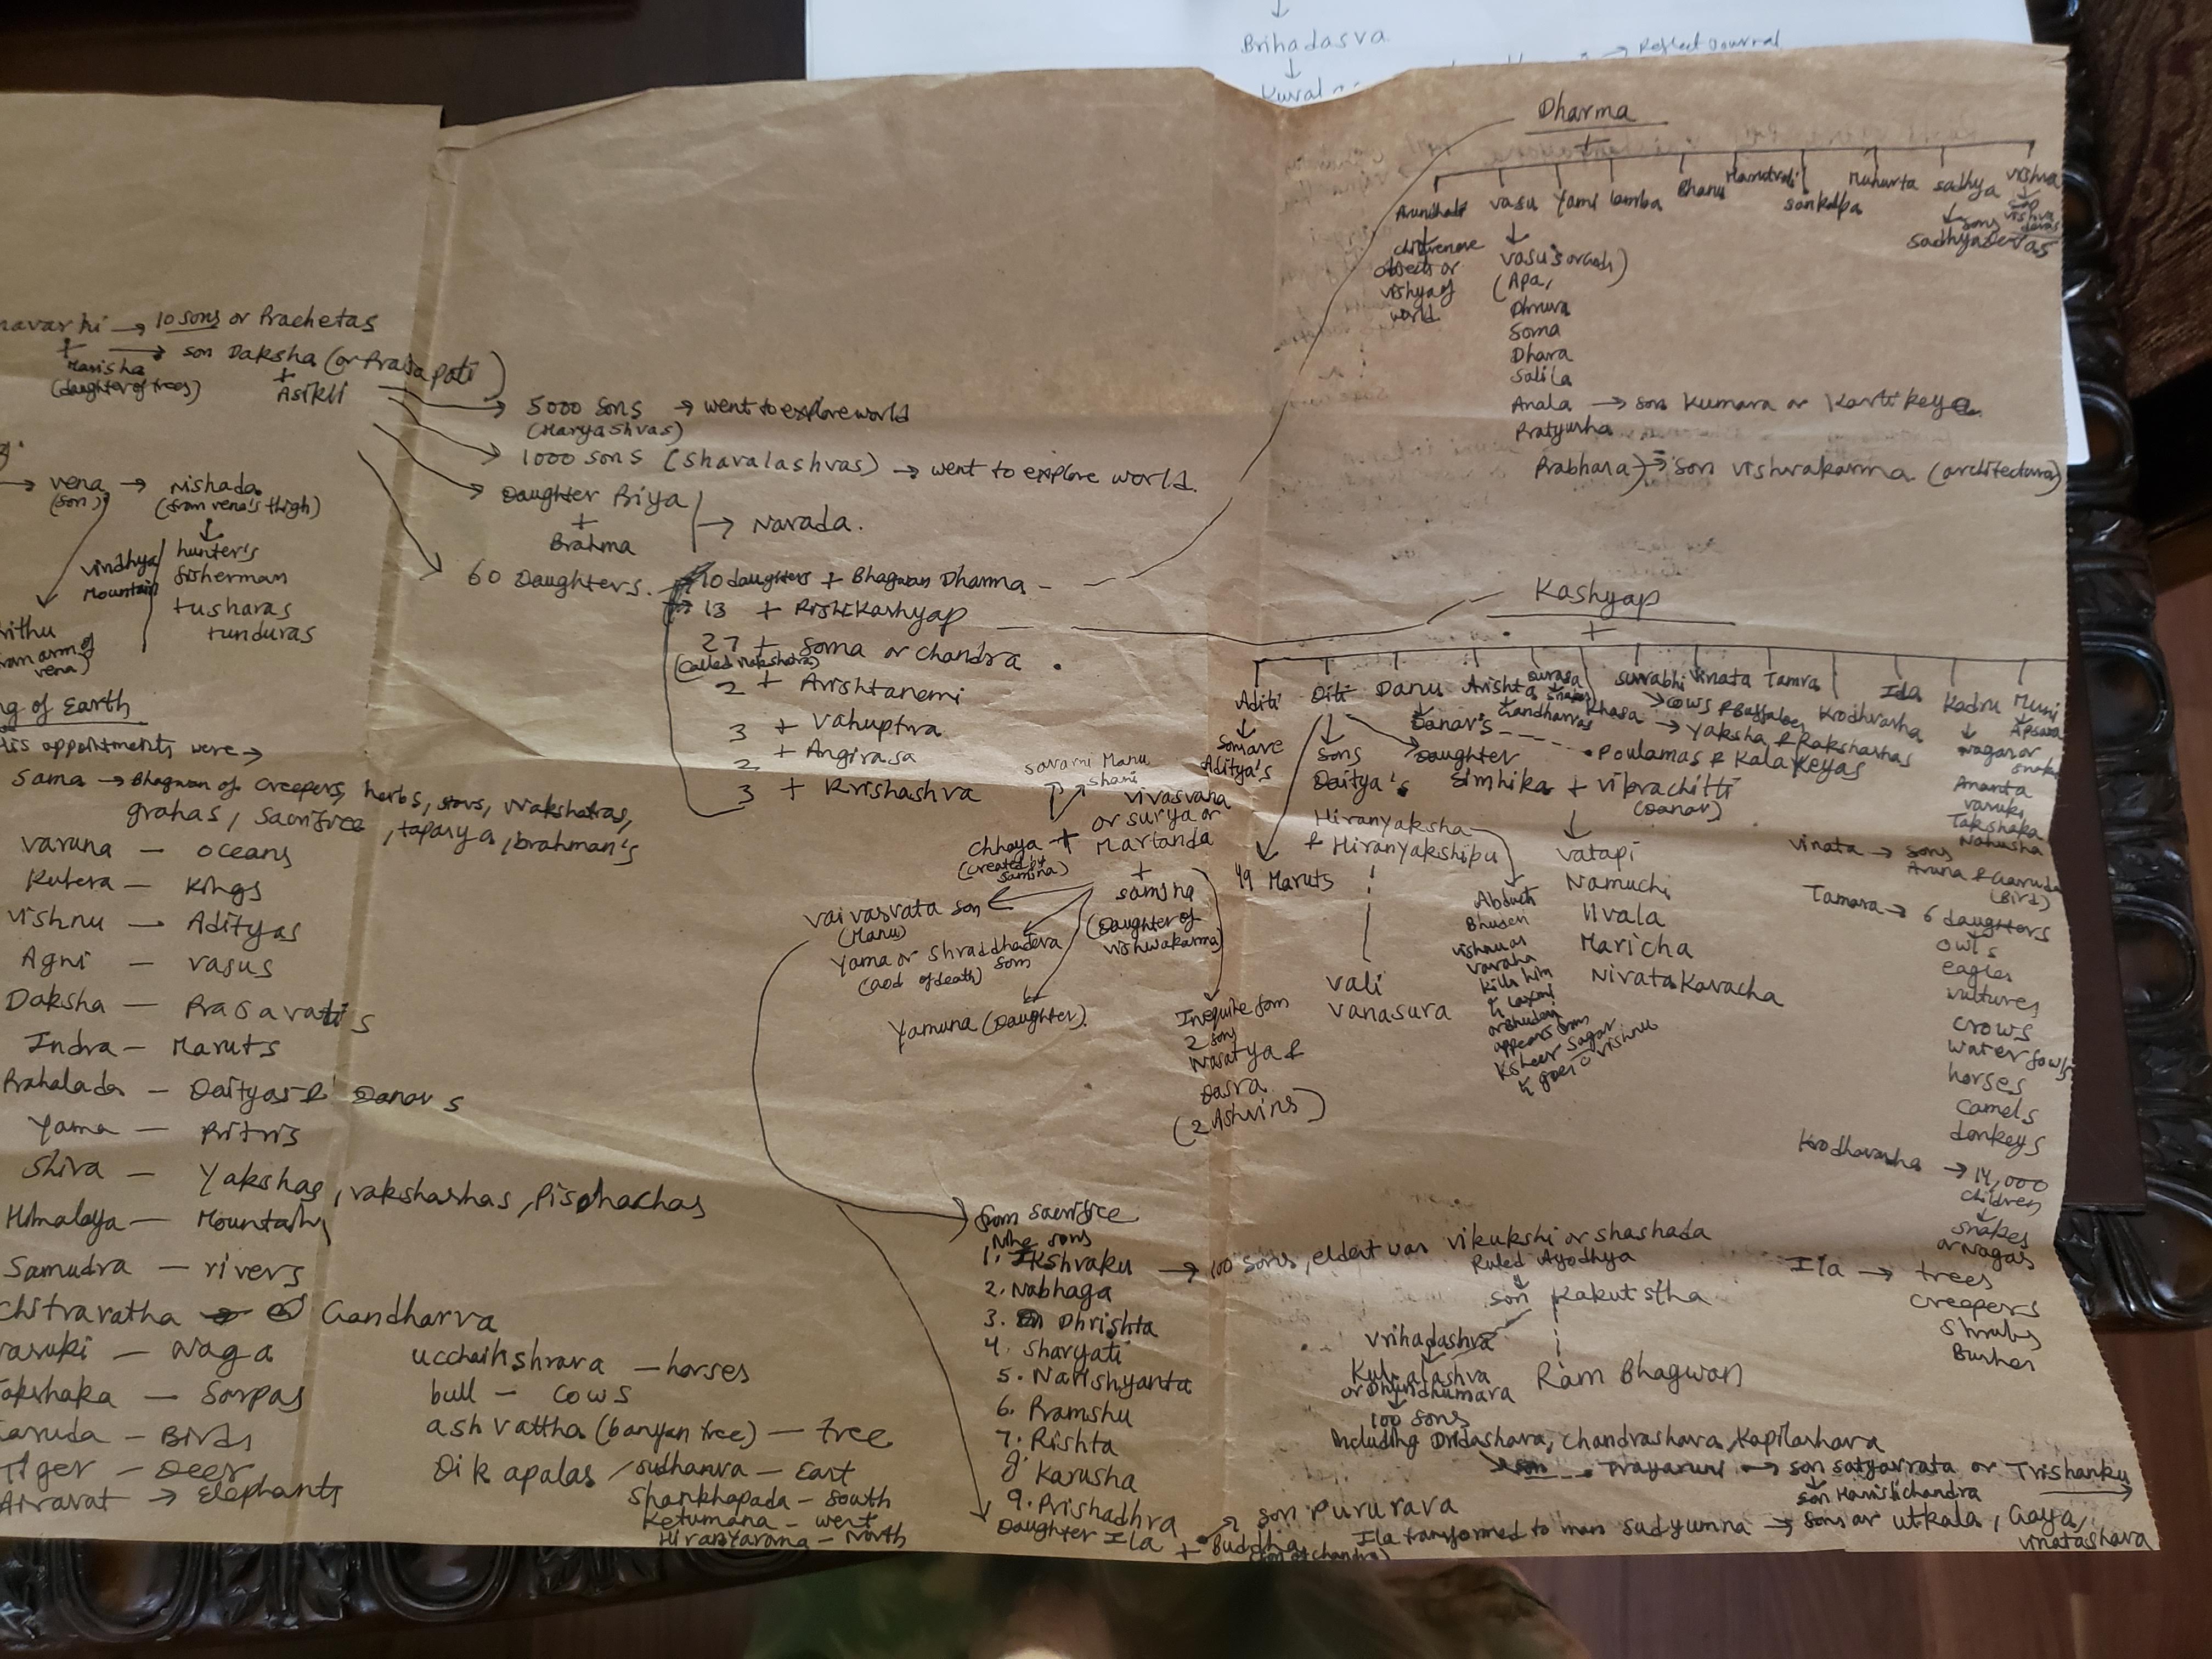 Brihadasva
→ Reflect Journal
Dharma
+
Arundhati vasu Yami lamba Bhanu sankalpa Muhurta sadhya vishva
children are
objects or
vishya of
world
vasu's or Gods)
(Apa,
Dhruva
Soma
Dhara
Salila
Anala → son Kumara or Kartikeya
Pratyusha
Prabhara) → son vishwakarma (architectura)
↓ sons
sadhyaDevas
→ 10 sons or Prachetas
+ → son Daksha (or Prajapati)
Marisha
(daughter of trees)
+
Asikli
5000 sons → went to explore world
(Haryashvas)
1000 sons (shavalashvas) → went to explore world.
Daughter Priya
+
Brahma
→ Narada.
60 Daughters.
10 daughters + Bhagwan Dharma
13 + Rishi Kashyap
27 + Soma or Chandra
(called Nakshatra)
2 + Arishtanemi
3 + Vahuptra
2 + Angirasa
3 + Krishashva
→ vena → Nishada
(son) (from vena's thigh)
↓
vindhya
Mountain
hunter's
fisherman
tusharas
tunduras
rithu
from arm of
vena)
ng of Earth
His appointments were →
Soma → Bhagwan of creepers, herbs, stars, Nakshatras,
grahas, sacrifice, tapasya, brahman's
varuna — oceans
Kubera — Kings
vishnu — Adityas
Agni — vasus
Daksha — Prajapatis
Indra — Maruts
Prahalada — Daityas & Danavs
Yama — Pitris
Shiva — Yakshas, rakshashas, Pishachas
Himalaya — Mountains
Samudra — rivers
Chitraratha → Gandharva
vasuki — Naga
Takshaka — Sarpas
Garuda — Birds
Tiger — Deer
Airavat → Elephants
ucchaihshrava — horses
bull — cows
ashvattha (banyan tree) — tree
Dikapalas / sudhanva — East
Shankhapada — South
Ketumana — west
Hiranyaroma — North
Kashyap
+
Aditi Diti Danu Arishta surasa Khasa surabhi vinata Tamra Krodhvasha Ida Kadru Muni
↓ sons are
Aditya's
↓
Sons
Daitya's
Danav's - - - - • Poulamas & Kalakeyas
Gandharvas
snakes
→ cows & Buffaloes
→ Yaksha & Rakshashas
↓
Nagas or
snakes
Ananta
vasuki
Takshaka
Nahusha
↓
Apsara
Daughter
Simhika + viprachitti
(Danav)
↓
vatapi
Namuchi
Ilvala
Maricha
NivataKavacha
Hiranyaksha
& Hiranyakshipu
vali
vanasura
49 Maruts
Abduct
Bhudevi
vishnu as
varaha
kills him
& Laxmi
or Bhudevi
appears from
Ksheer Sagar
& goes to vishnu
vinata → sons
Aruna & Garuda
(Bird)
Tamara → 6 daughters
owls
eagles
vultures
crows
water fowls
horses
camels
donkeys
Krodhavasha → 14,000
children
↓
snakes
or Nagas
Ila → trees
creepers
shrubs
Bushes
savarni Manu
shani
Chhaya +
(created by
Samjna)
vivasvana
or surya or
Martanda
+
samjna
(Daughter of
vishwakarma)
vaivasvata son
(Manu)
Yama or Shraddhadeva
(God of death) son
Yamuna (Daughter)
In equine form
2 son
Nasatya &
Dasra
(2 Ashvins)
from sacrifice
Nine sons
1. Ikshvaku → 100 sons, eldest was vikukshi or shashada
2. Nabhaga
3. Dhrishta
4. Sharyati
5. Narishyanta
6. Pramshu
7. Rishta
8. Karusha
9. Prishadhra
Ruled Ayodhya
↓
son Kakutstha
vrihadashva
Kuvalashva
or Dhundhumara
↓
100 sons
including Dridashava, chandrashava, Kapilashava
Ram Bhagwan
son - - - - Trayaruni → son satyavrata or Trishanku
↓
son Harishchandra
Daughter Ila + Buddha
(son of chandra)
son Pururava
Ila transformed to man sudyumna → sons are utkala, Gaya,
vinatashava